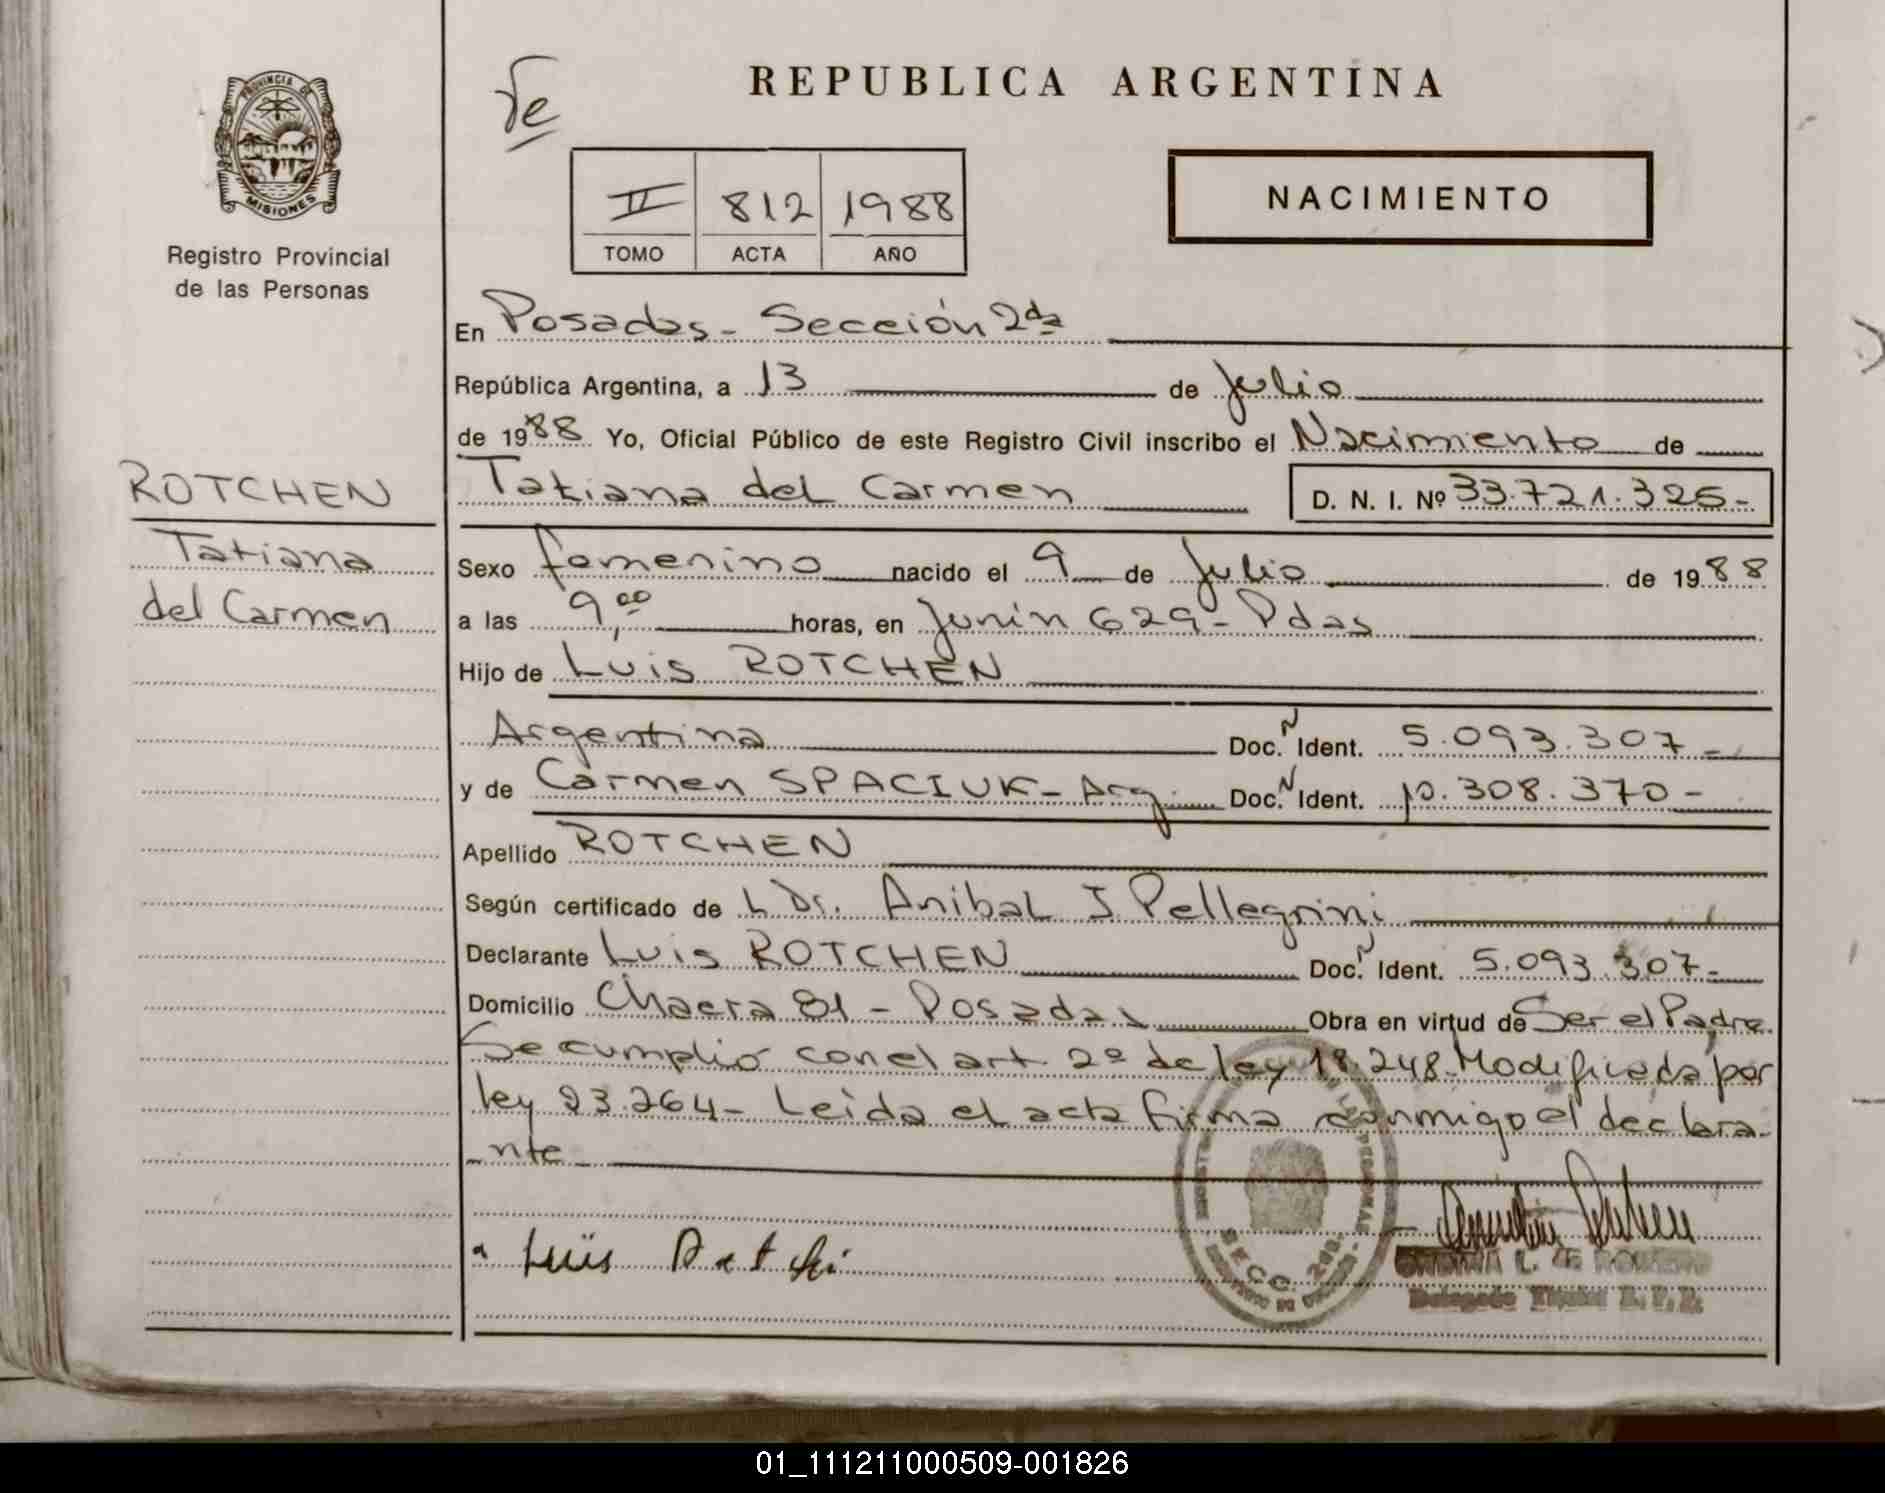 PROVINCIA DE
MISIONES
Registro Provincial
de las Personas
REPUBLICA ARGENTINA
II 812 1988
TOMO ACTA AÑO
NACIMIENTO
En Posadas - Sección 2da
República Argentina, a 13 de Julio
de 1988 Yo, Oficial Público de este Registro Civil inscribo el Nacimiento de
ROTCHEN
Tatiana
del Carmen
Tatiana del Carmen D. N. I. Nº 33.721.325-
Sexo femenino nacido el 9 de Julio de 1988
a las 9,00 horas, en Junín 629 - Pdas
Hijo de Luis ROTCHEN
Argentina Doc. N Ident. 5.093.307-
y de Carmen SPACIUK - Arg. Doc. N Ident. 10.308.370-
Apellido ROTCHEN
Según certificado de L Dr. Anibal J Pellegrini
Declarante Luis ROTCHEN Doc. N Ident. 5.093.307-
Domicilio Chacra 81 - Posadas Obra en virtud de Ser el Padre
Se cumplió con el art 2º de ley 18.248 Modificada por
ley 23.264 - Leida el acta firma conmigo el declara-
nte
Luis
SECC. 2da.
L. de ROMERO
01_111211000509-001826